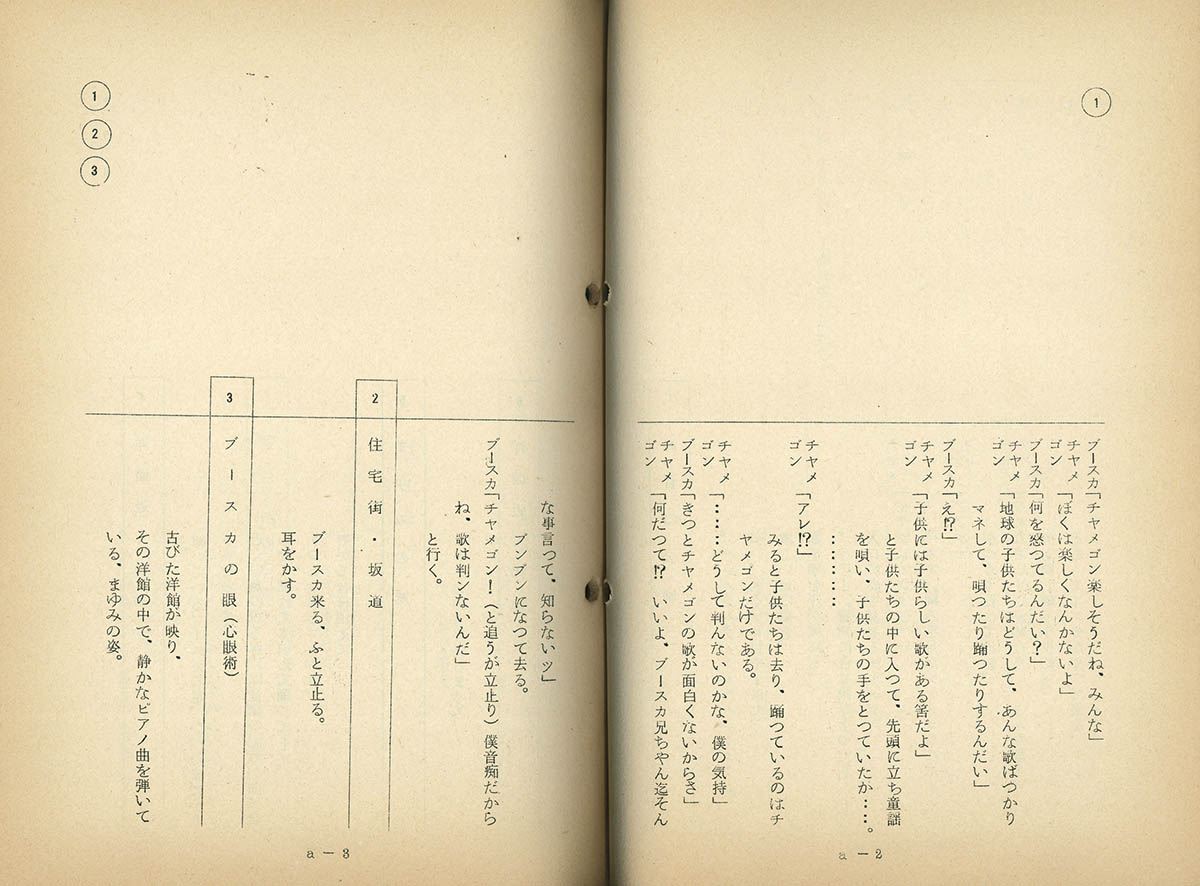 ①
ブースカ「チャメゴン楽しそうだね、みんな」
チヤメゴン「ぼくは楽しくなんかないよ」
ブースカ「何を怒つてるんだい？」
チヤメゴン「地球の子供たちはどうして、あんな歌ばつかり
マネして、唄つたり踊つたりするんだい」
ブースカ「え⁉」
チヤメゴン「子供には子供らしい歌がある筈だよ」
と子供たちの中に入つて、先頭に立ち童謡
を唄い、子供たちの手をとつていたが‥‥。
‥‥‥‥
チヤメゴン「アレ⁉」
みると子供たちは去り、踊つているのはチ
ヤメゴンだけである。
チヤメゴン「‥‥どうして判んないのかな、僕の気持」
ブースカ「きつとチヤメゴンの歌が面白くないからさ」
チヤメゴン「何だつて⁉　いいよ、ブースカ兄ちやん迄そん
a－2
な事言つて、知らないッ」
プンプンになつて去る。
ブースカ「チヤメゴン！（と追うが立止り）僕音痴だから
ね、歌は判ンないんだ」
と行く。
2　住宅街・坂道
ブースカ来る、ふと立止る。
耳をかす。
3　ブースカの眼（心眼術）
古びた洋館が映り、
その洋館の中で、静かなピアノ曲を弾いて
いる、まゆみの姿。
①
②
③
a－3